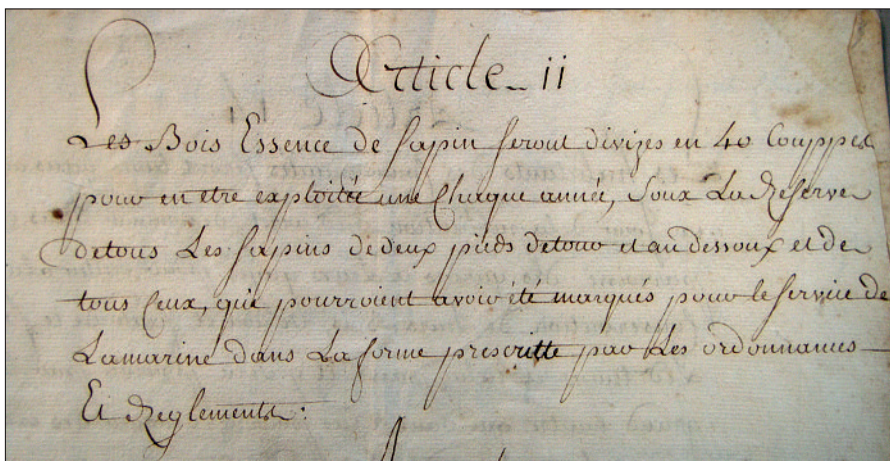 Article ii
Les Bois Essence de sapin seront divizes en 40 Couppes
pour en etre exploitée une Chaque année, Soux La Reserve
detous Les sapins dedeux pieds detour et au dessoux et de
tous Ceux, que pourroient avoir été marques pour le service de
Lamarine dans La forme prescritte par Les ordonnances
Et Reglements: